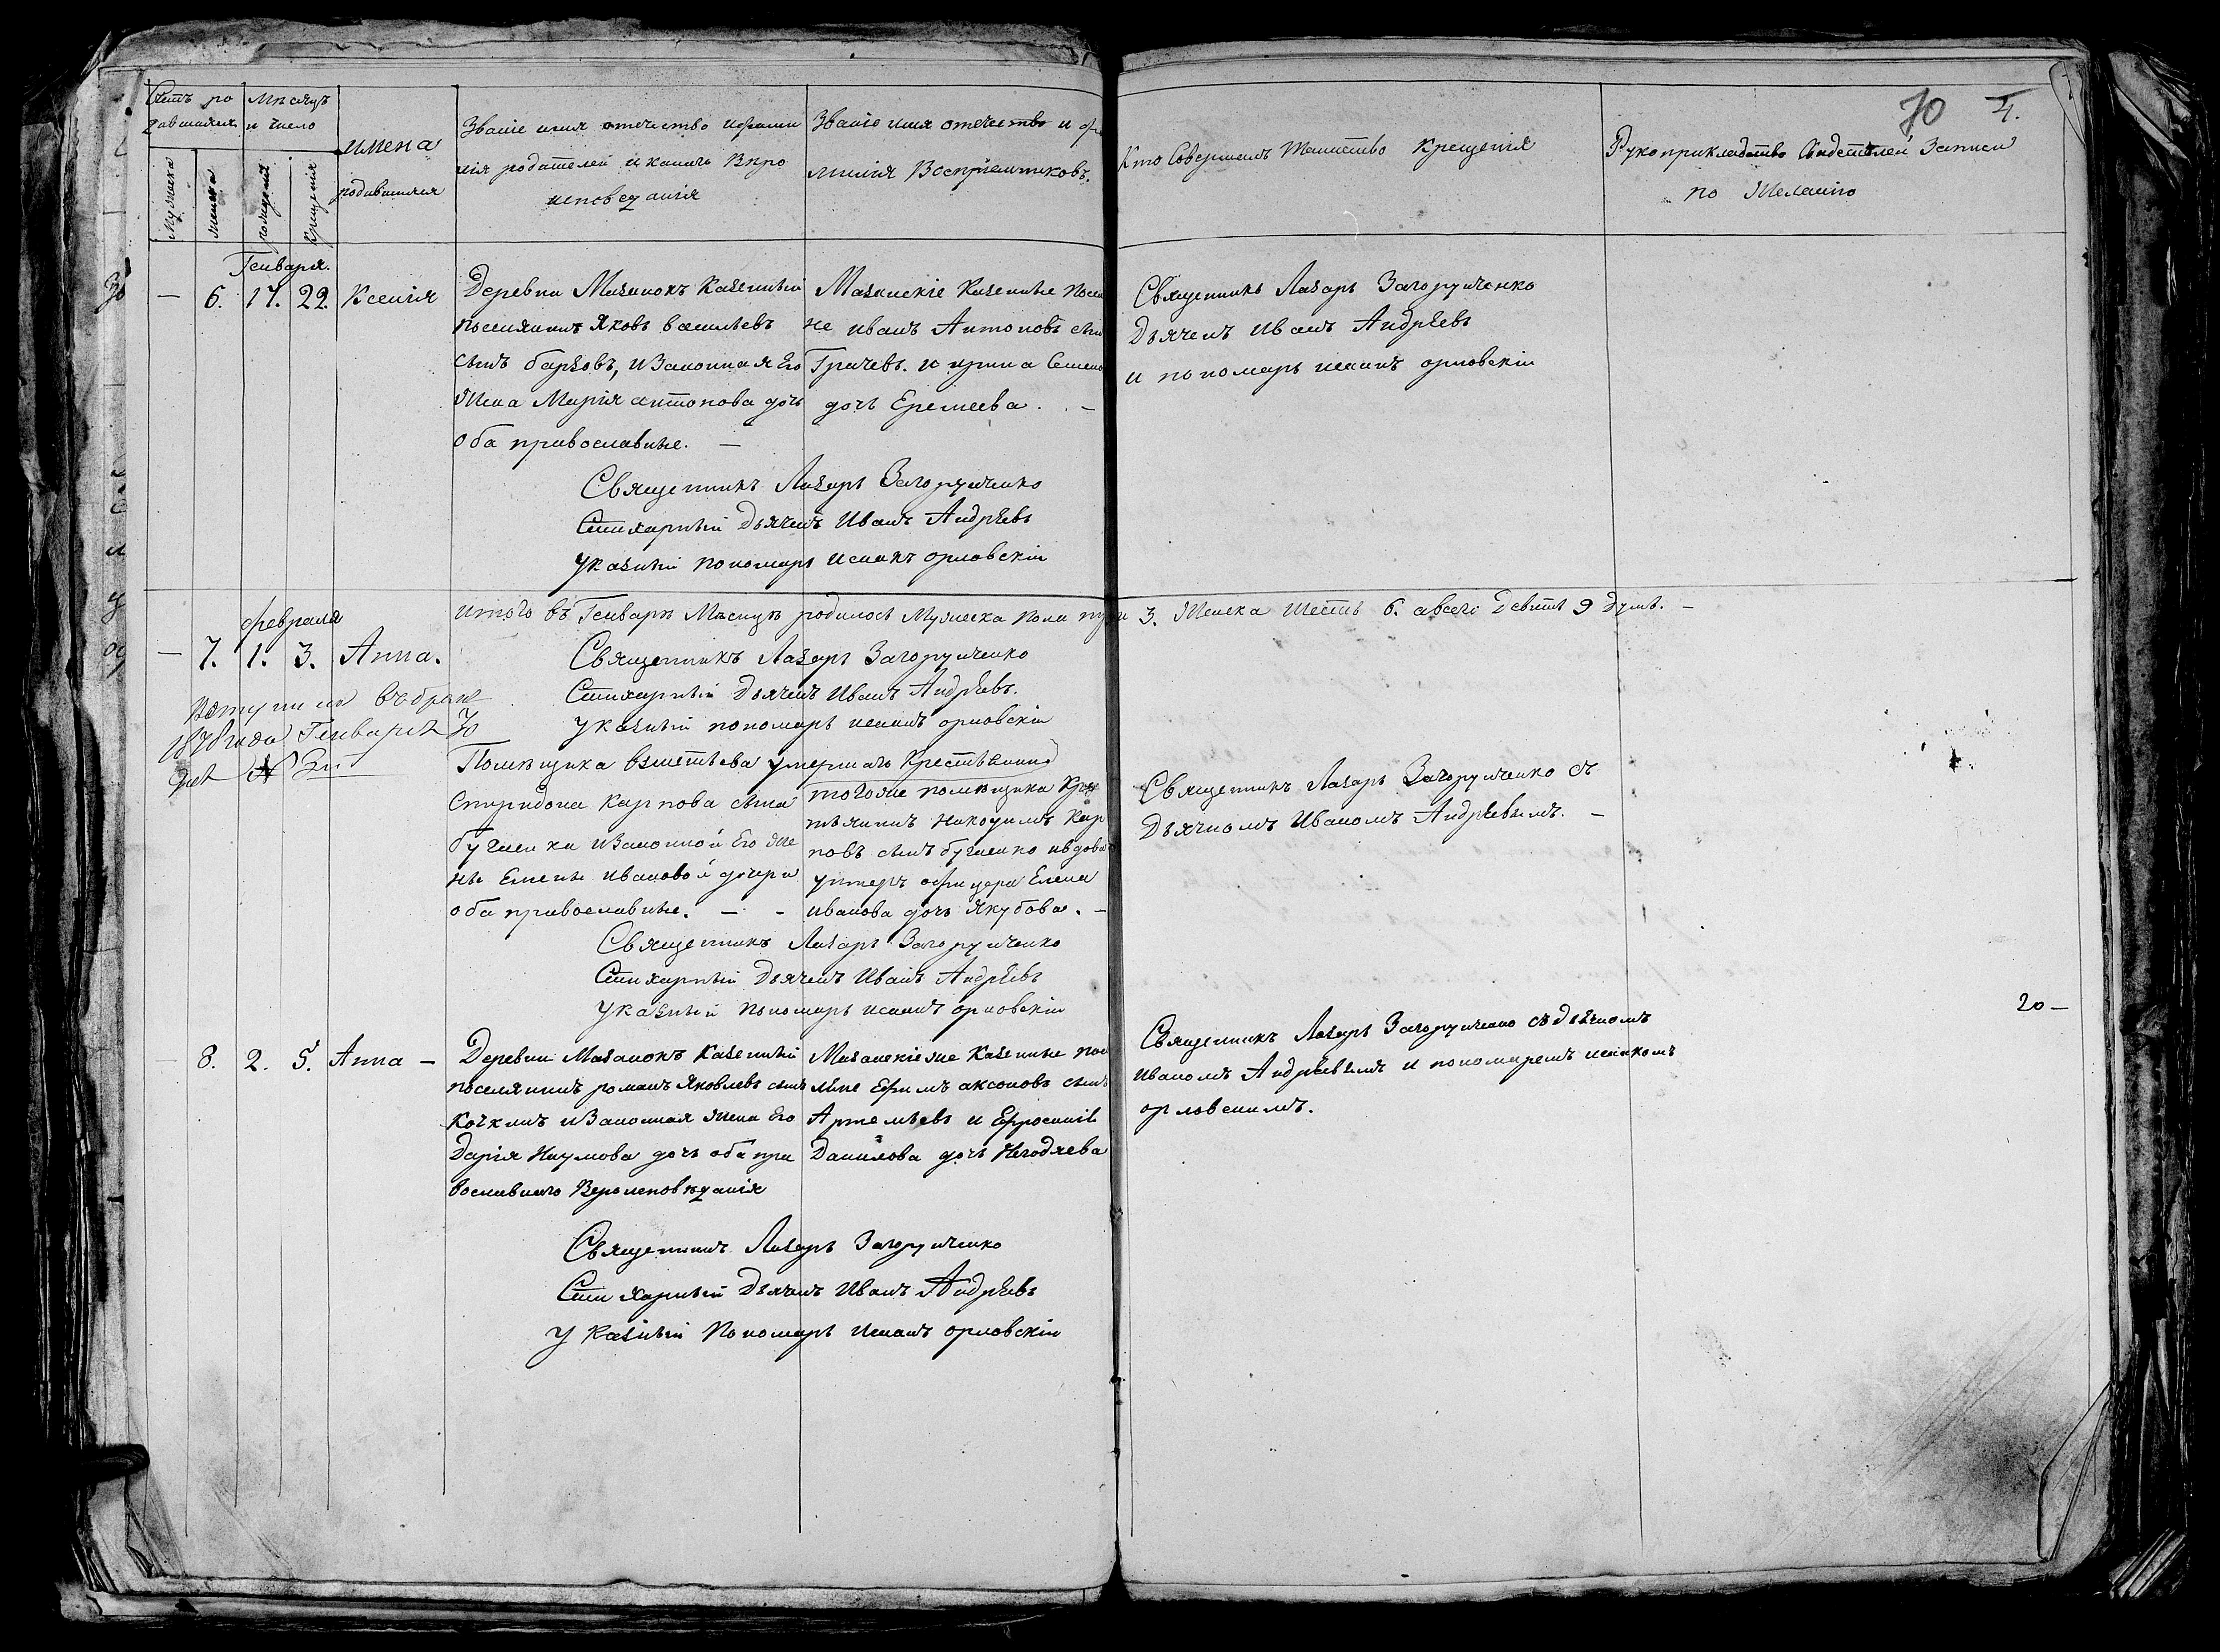 70 4.
Счетъ ро
дившихся
Мѣсяцъ
и число
мужеска
женска
рожденія
Крещенія
имена
родившихся
Званіе имя отечество и фами
лія родителей и какаго Вѣро
исповеданія
Званіе имя отечество и фа
милія Воспріемниковъ.
Кто Совершалъ Таинство Крещенія
Рукоприкладство Свидетелей Записи
по Желанію
Генваря.
— 6. 17. 22. Ксенія
Деревни Мазанокъ Казенный
поселянинъ Яковъ васильевъ
сынъ барковъ, и Законная Его
Жена Марія антонова дочь
оба православные. —
Мазанскіе Казенные Посел
не иванъ Антоновъ сынъ
Грачевъ. и ирина Семено
дочь Еремеева. . —
Священникъ Лазарь Загоруйченко
Дьячекъ Иванъ Андрѣевъ
и пономарь исаакъ орловскій
Священникъ Лазарь Загоруйченко
Стихарный Дьячекъ Иванъ Андрѣевъ
Указный пономарь исаакъ орловскій
итого въ Генварѣ Мѣсяцѣ родилось Мужеска Пола три 3. Женска Шесть 6. а всего Девять 9 Душъ. —
февраля
— 7. 1. 3. Анна.
Священникъ Лазарь Загоруйченко
Стихарный Дьячекъ Иванъ Андрѣевъ.
Указный пономарь исаакъ орловскій
Вступила въ бракъ
1878 года Генваря 30
дня
Помѣщика умершаго Крестьянина
Спиридона Карпова сына
бугаенки и Законной Его же
ны Елены ивановой дочери
оба православные. — -
тогоже помѣщика Крес
тьянинъ Никодимъ Кар
повъ сынъ бугаенко и вдова
унтеръ офицера Елена
иванова дочь Якубова. —
Священникъ Лазарь Загоруйченко съ
Дьячкомъ Иваномъ Андрѣевымъ. —
Священникъ Лазарь Загоруйченко
Стихарный Дьячекъ Иванъ Андрѣевъ
Указный пономарь исаакъ орловскій
20 —
— 8. 2. 5. Анна —
Деревни Мазанокъ Казенный
поселянинъ романъ Яковлевъ сынъ
и Законная жена Его
Дарія Наумова дочь оба пра
вославнаго Вероисповѣданія
Мазанскіе же Казенные посе
ляне Ефимъ аксоновъ сынъ
Артемьевъ и Ефросинія
Данилова дочь Негодяева
Священникъ Лазарь Загоруйченко съ дьячкомъ
Иваномъ Андрѣевымъ и пономаремъ исаакомъ
орловскимъ.
Священникъ Лазарь Загоруйченко
Стихарный Дьячекъ Иванъ Андрѣевъ
Указный Пономарь исаакъ орловскій